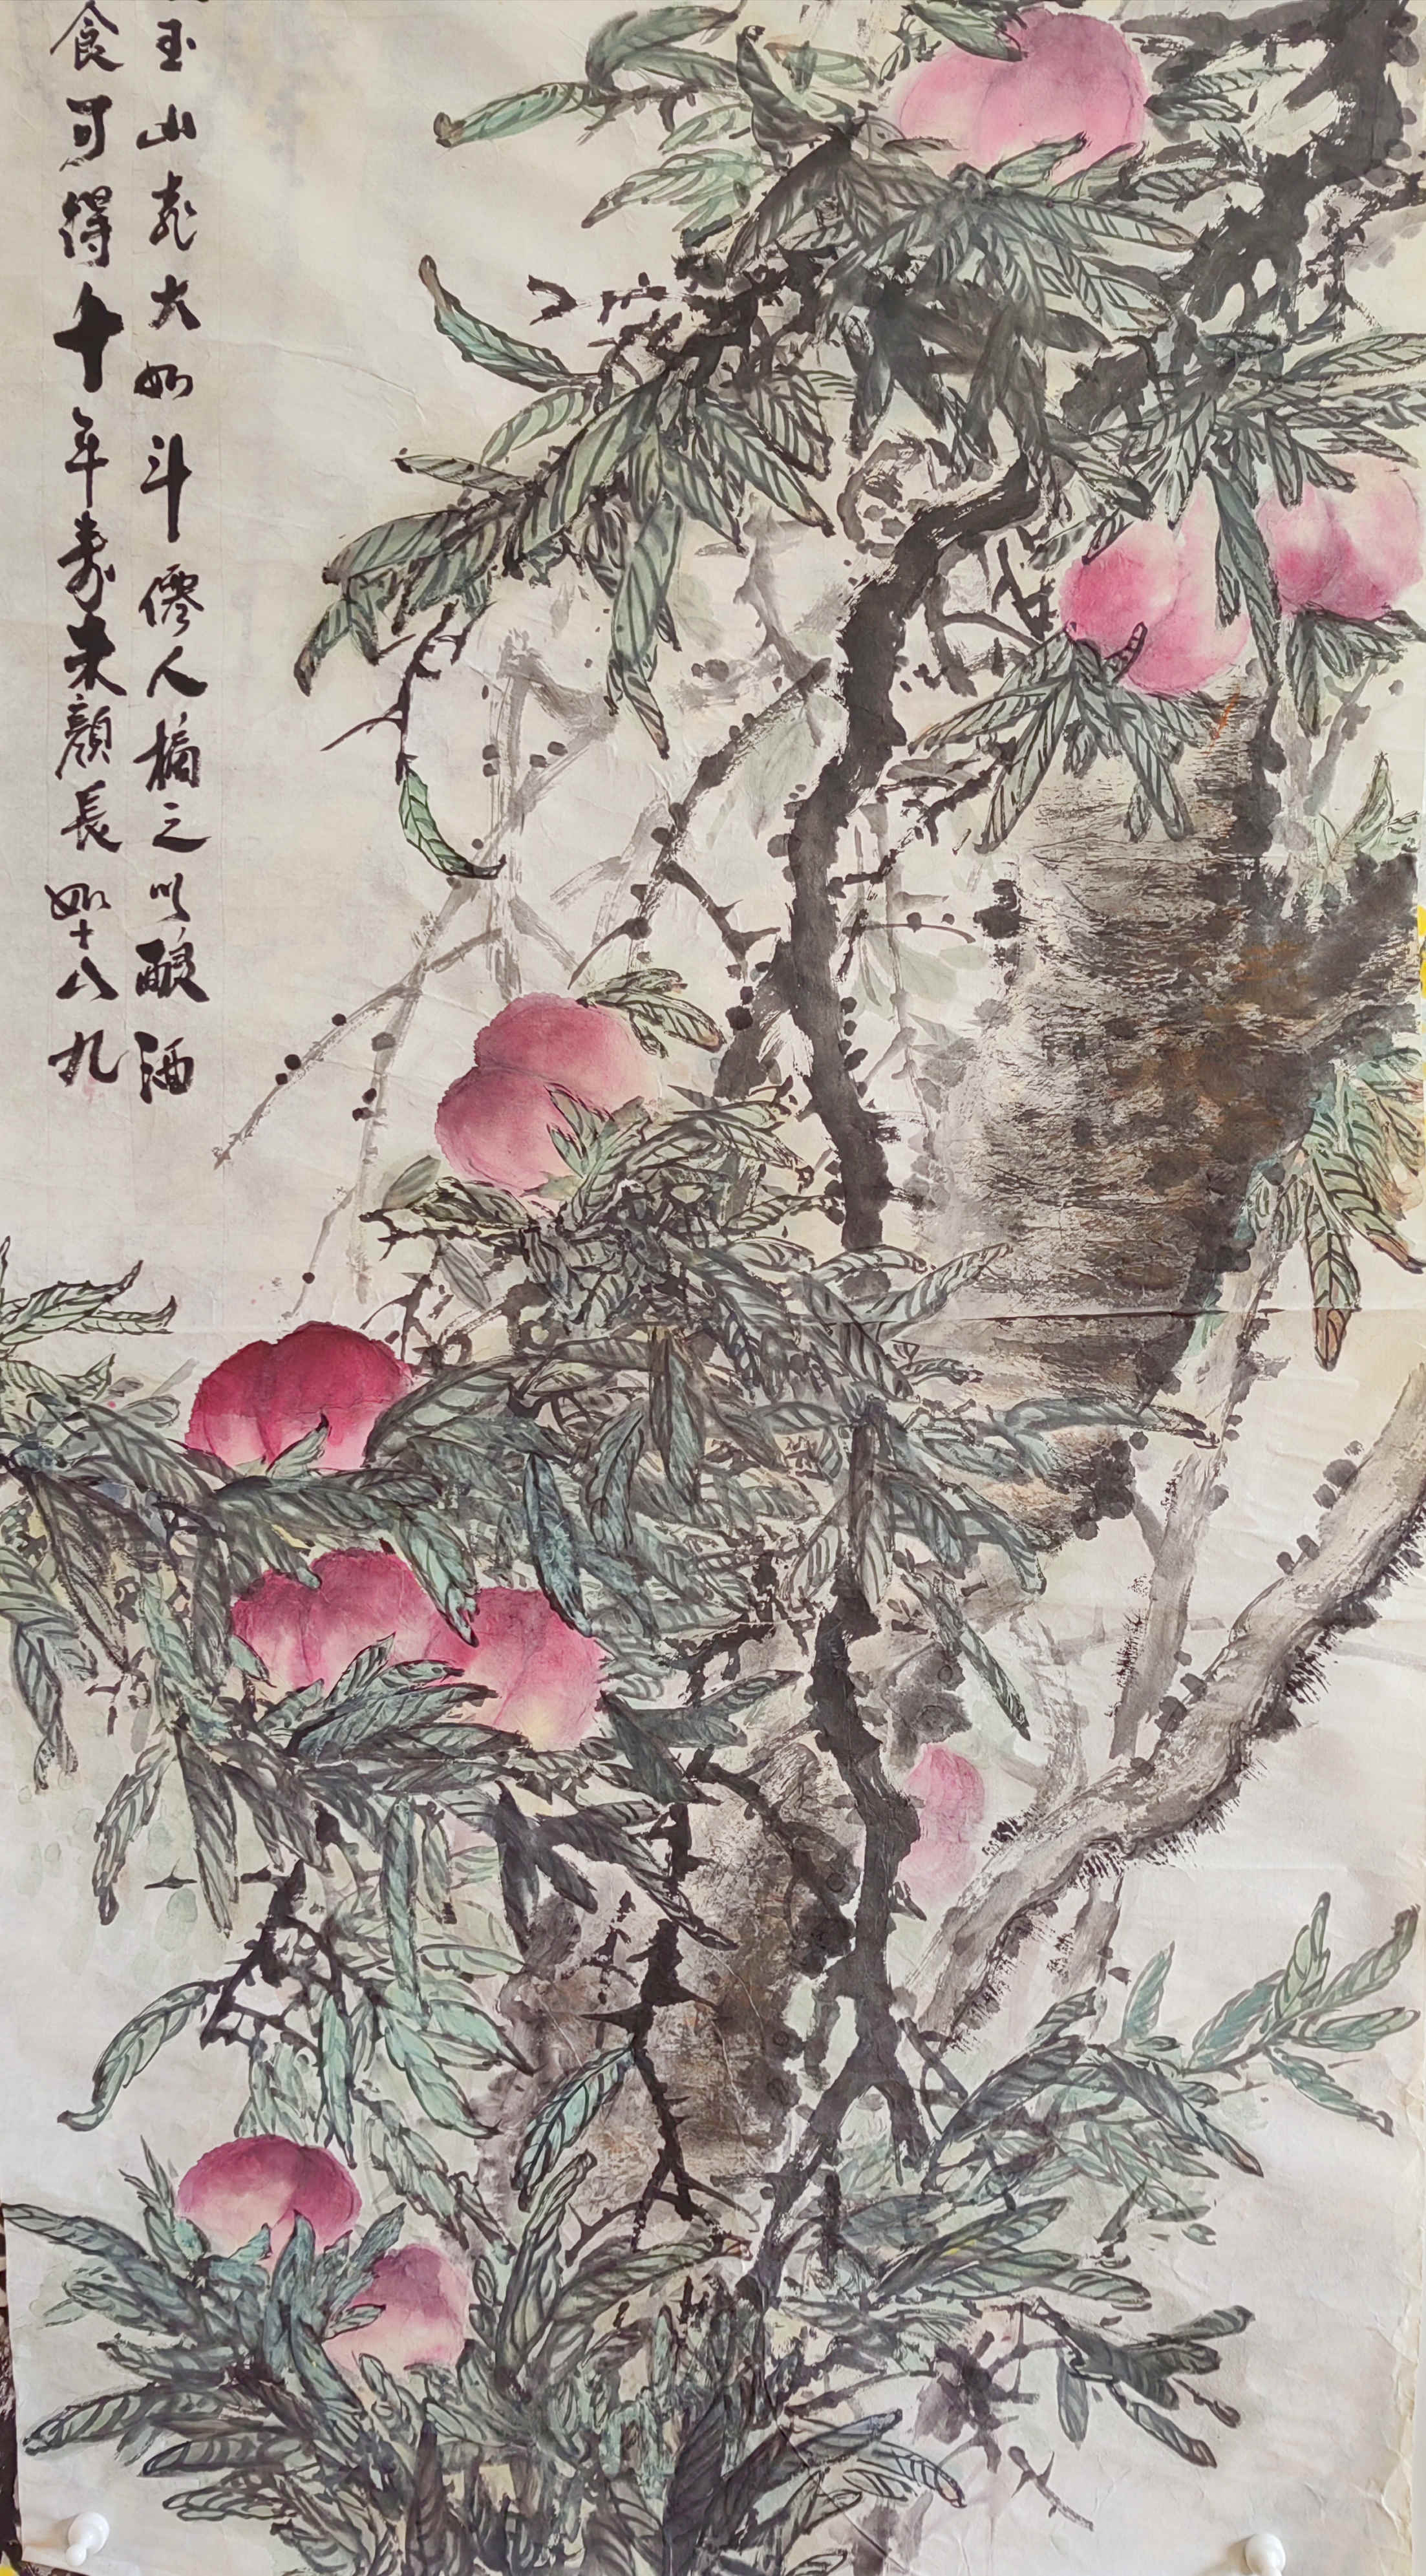 玉山桃大如斗僊人摘之以釀酒
食可得千年壽朱顏長如十八九